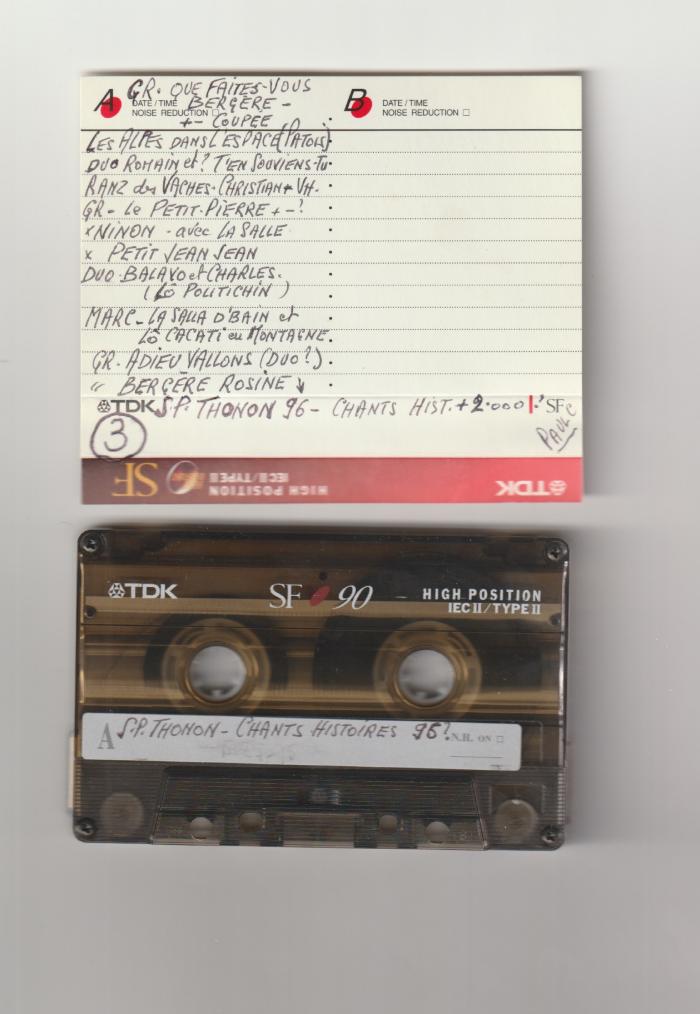 A GR. QUE FAITES-VOUS
DATE / TIME BERGÈRE -
NOISE REDUCTION □
+- COUPEE
B DATE / TIME
NOISE REDUCTION □
LES ALPES DANS L'ESPACE (PATOIS)
DUO ROMAIN et ? T'EN SOUVIENS-TU
RANZ des VACHES - CHRISTIAN + VH.
GR - Le PETIT-PIERRE + - ?
x NINON - avec LA SALLE
x PETIT JEAN JEAN
DUO BALAVO et CHARLES.
(LÔ POLITICHIN)
MARC - LA SALLA D'BAIN et
LÔ CACATI eu MONTAGNE.
GR. ADIEU VALLONS (DUO?)
" BERGÈRE ROSINE ↓
TDK S.P. THONON 96 - CHANTS HIST. + 2.000 ? SF
3
PAUL C
SF HIGH POSITION
IECII/TYPEII
TDK
TDK SF 90 HIGH POSITION
IECII/TYPEII
A S.P. THONON - CHANTS HISTOIRES 96? N.R. ON □